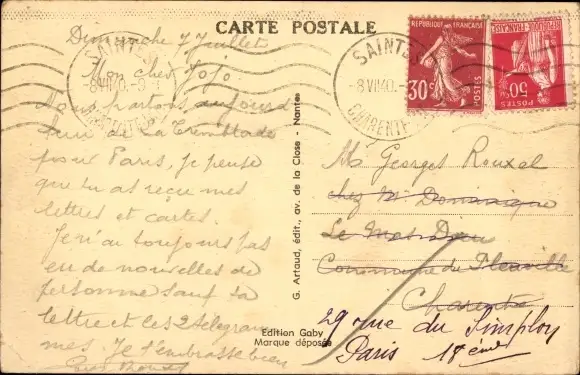 CARTE POSTALE
Dimanche 7 Juillet
Mon cher Jojo
Nous partons aujourd
hui de La Tremblade
pour Paris, je pense
que tu as reçu mes
lettres et cartes.
Je n'ai toujours pas
eu de nouvelles de
personne sauf ta
lettre et les 2 télégram
mes. Je t'embrasse bien
G. Artaud, édit., av. de la Close - Nantes
Edition Gaby
Marque déposée
SAINTES
-8 VII 40.-
CHARENTE
SAINTES
-8 VII 40.-
CHARENTE
REPUBLIQUE FRANÇAISE
30c
POSTES
REPUBLIQUE FRANÇAISE
50c
POSTES
Georges Rouxel
chez Mr Dominique
Commune de
Charente
29 rue du Simplon
Paris 18ème